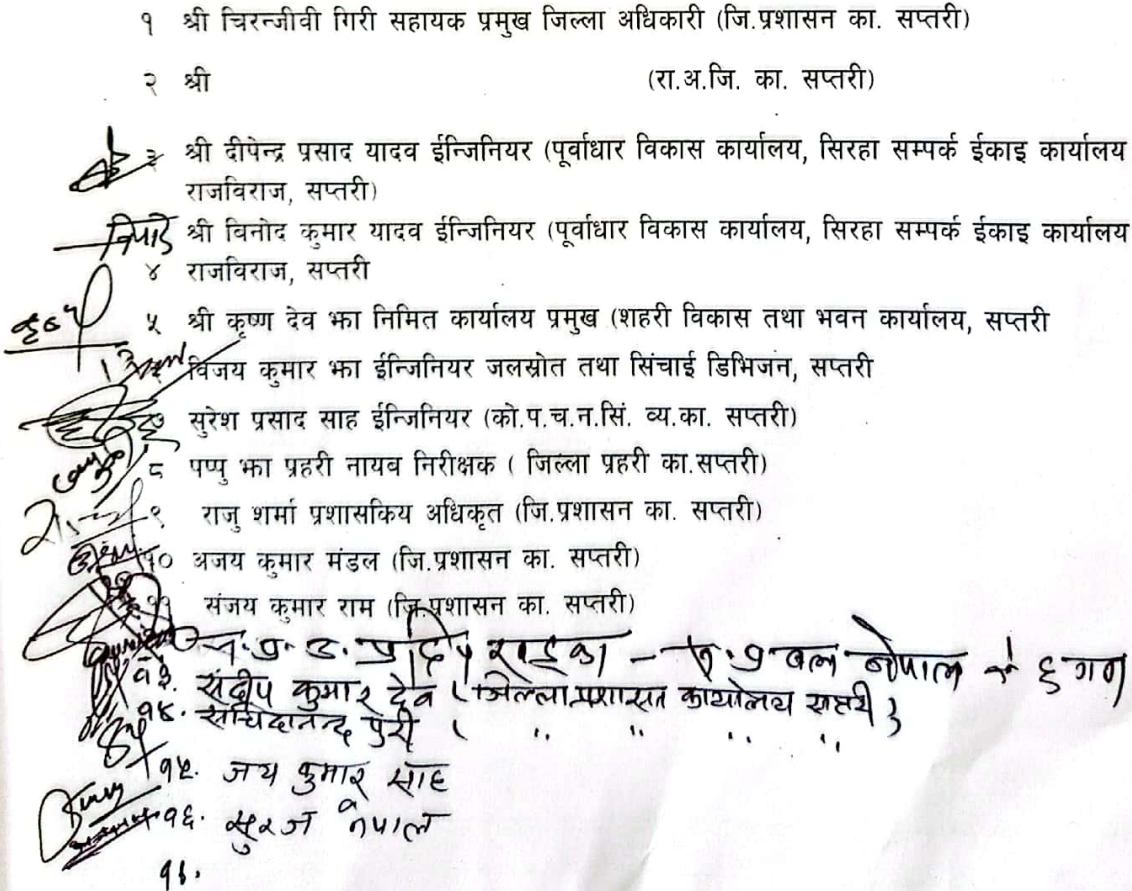 १ श्री चिरन्जीवी गिरी सहायक प्रमुख जिल्ला अधिकारी (जि.प्रशासन का. सप्तरी)
२ श्री (रा.अ.जि. का. सप्तरी)
३ श्री दीपेन्द्र प्रसाद यादव ईन्जिनियर (पूर्वाधार विकास कार्यालय, सिरहा सम्पर्क ईकाइ कार्यालय
राजविराज, सप्तरी)
श्री विनोद कुमार यादव ईन्जिनियर (पूर्वाधार विकास कार्यालय, सिरहा सम्पर्क ईकाइ कार्यालय
४ राजविराज, सप्तरी
५ श्री कृष्ण देव झा निमित कार्यालय प्रमुख (शहरी विकास तथा भवन कार्यालय, सप्तरी
विजय कुमार झा ईन्जिनियर जलस्रोत तथा सिंचाई डिभिजन, सप्तरी
७ सुरेश प्रसाद साह ईन्जिनियर (को.प.च.न.सिं. व्य.का. सप्तरी)
८ पप्पु झा प्रहरी नायव निरीक्षक ( जिल्ला प्रहरी का.सप्तरी)
९ राजु शर्मा प्रशासकिय अधिकृत (जि.प्रशासन का. सप्तरी)
१० अजय कुमार मंडल (जि.प्रशासन का. सप्तरी)
११ संजय कुमार राम (जि.प्रशासन का. सप्तरी)
प्र. उ. प्रदिप खड्का - स. प्र बल नेपाल नं ६ गण
१३. संदीप कुमार देव (जिल्ला प्रशासन कार्यालय सप्तरी)
१४. सचिदानन्द पुरी ( ,, ,, ,, ,,
१५. जय कुमार साह
१६. सुरज नेपाल